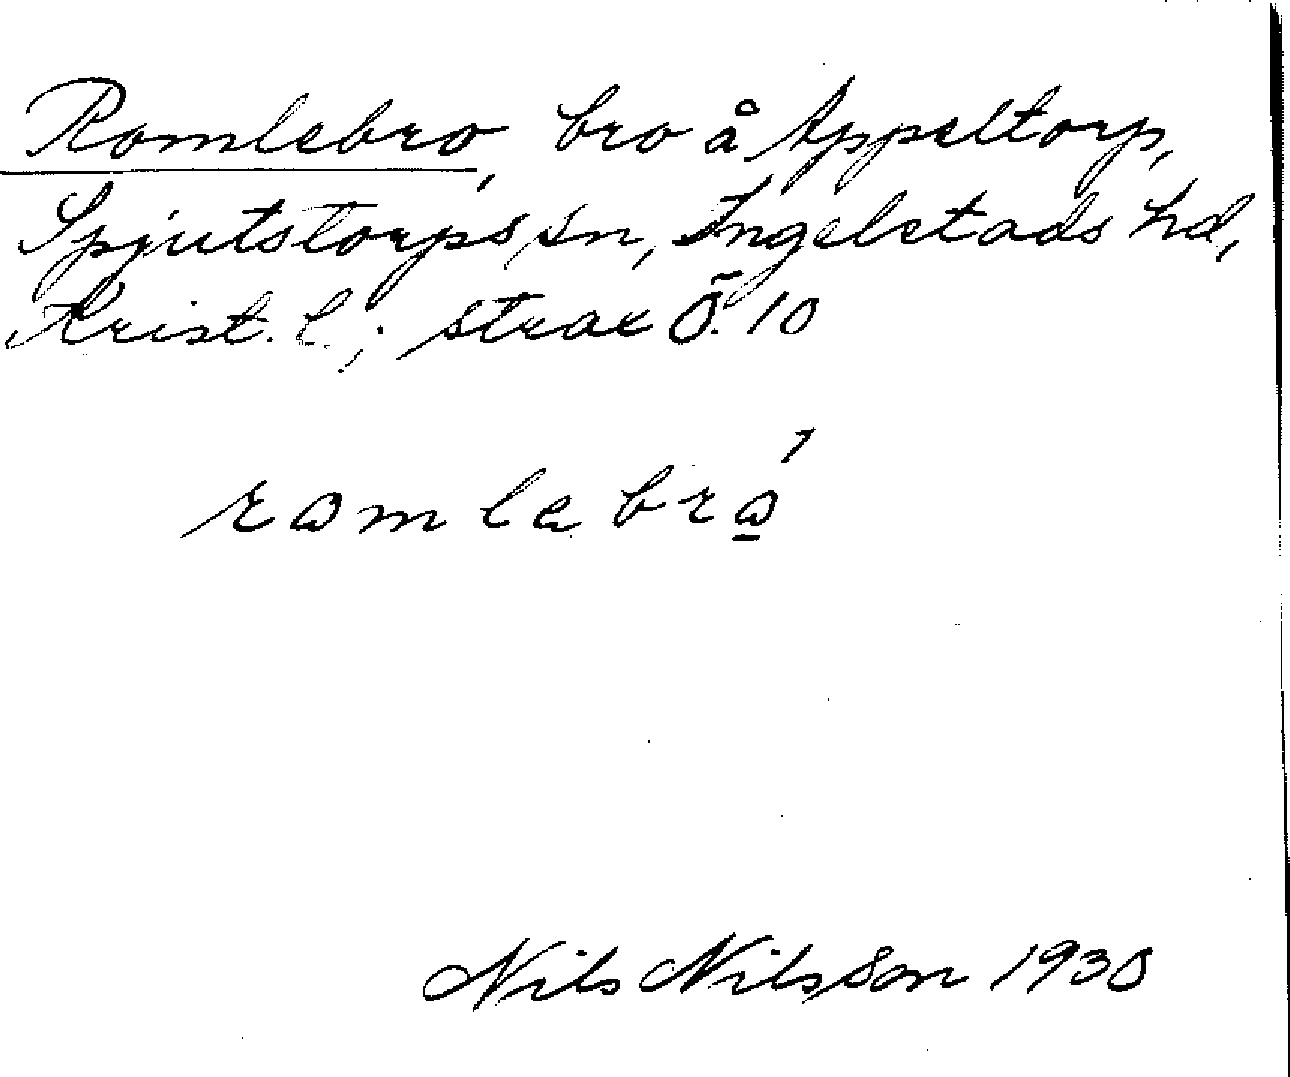 Romlebro, bro å Äppeltorp,
Spjutstorps sn, Ingelstads hd,
Krist. l.; strax Ö. 10
romlebro
Nils Nilsson 1930